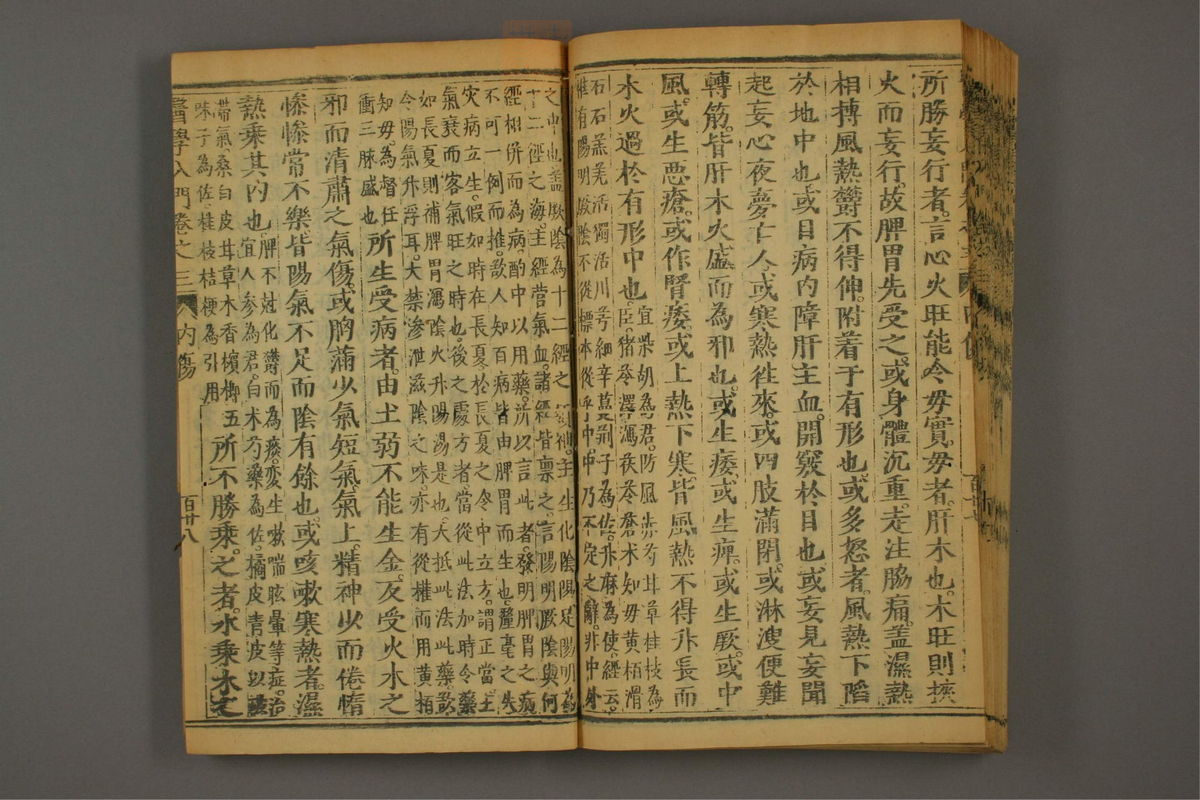 所勝妄行者言心火旺能令母實母者肝木也木旺則挾
火而妄行故脾胃先受之或身體沉重走注脇痛盖濕熱
相摶風熱欝不得伸附着于有形也或多怒者風熱下䧟
於地中也或目病内障肝主血開竅於目也或妄見妄聞
起妄心夜夢亡人或寒熱徃來或四肢滿閉或淋溲便難
轉筋皆肝木火盛而為邪也或生痿或生痺或生厥或中
風或生惡瘡或作腎痿或上熱下寒皆風熱不得升長而
木火過於有形中也
宜柴胡為君防風赤芍甘草桂枝為
臣猪苓澤瀉茯苓蒼术知母黄栢滑
石石羔羌活獨活川芎細辛蔓荆子為佐升麻為使經云
惟有陽明厥陰不從標本從乎中中乃不定之辭非中外
之中也盖厥陰為十二經之領神主生化陰陽足陽明為
十二經之海主經營氣血諸經皆禀之言陽明厥陰與何
經相併而為病酌中以用藥所以言此者發明脾胃之病
不可一例而推欲人知百病皆由脾胃而生也釐毫之失
灾病立生假如時在長夏於長夏之令中立方謂正當主
氣衰而客氣旺之時也後之處方者當從此法加時令藥
如長夏則補脾胃瀉陰火升陽湯是也大抵此法此藥欲
令陽氣升浮耳大禁滲泄滋陰之味亦有從權而用黄栢
知母為督任
衝三脉盛也
所生受病者由土弱不能生金反受火水之
邪而清肅之氣傷或胸滿少氣短氣氣上精神少而倦惰
慘慘常不樂皆陽氣不足而陰有餘也或咳嗽寒熱者濕
熱乘其内也
脾不冾化欝而為痰變生嗽喘眩暈等症治
宜人参為君白术芍藥為佐橘皮青皮以
帶氣桑白皮甘草木香檳榔五
味子為佐桂枝桔梗為引用
所不勝乘之者水乘木之
醫學入門卷之三
内傷
百廿八